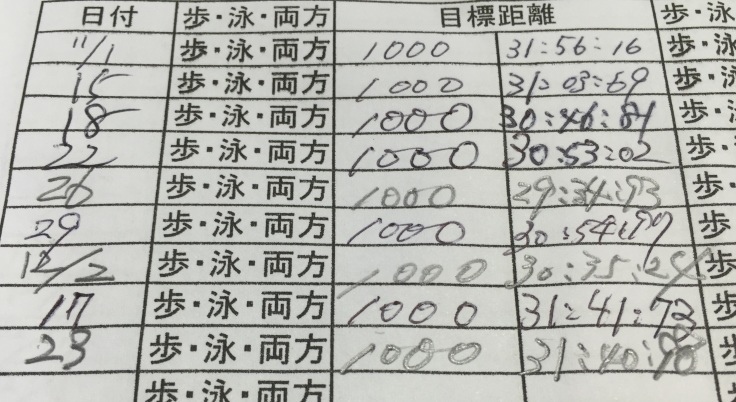 日付 歩・泳・両方 目標距離 歩・泳
11/1 歩・泳・両方 1000 31:56:16 歩・泳
15 歩・泳・両方 1000 31:03:69 歩・泳
18 歩・泳・両方 1000 30:46:81 歩・
22 歩・泳・両方 1000 30:53:02 歩・
26 歩・泳・両方 1000 29:34:93 歩・
29 歩・泳・両方 1000 30:54: 歩・
12/2 歩・泳・両方 1000 30:35: 歩
17 歩・泳・両方 1000 31:41:73 歩
23 歩・泳・両方 1000 31:40: 歩
歩・泳・両方